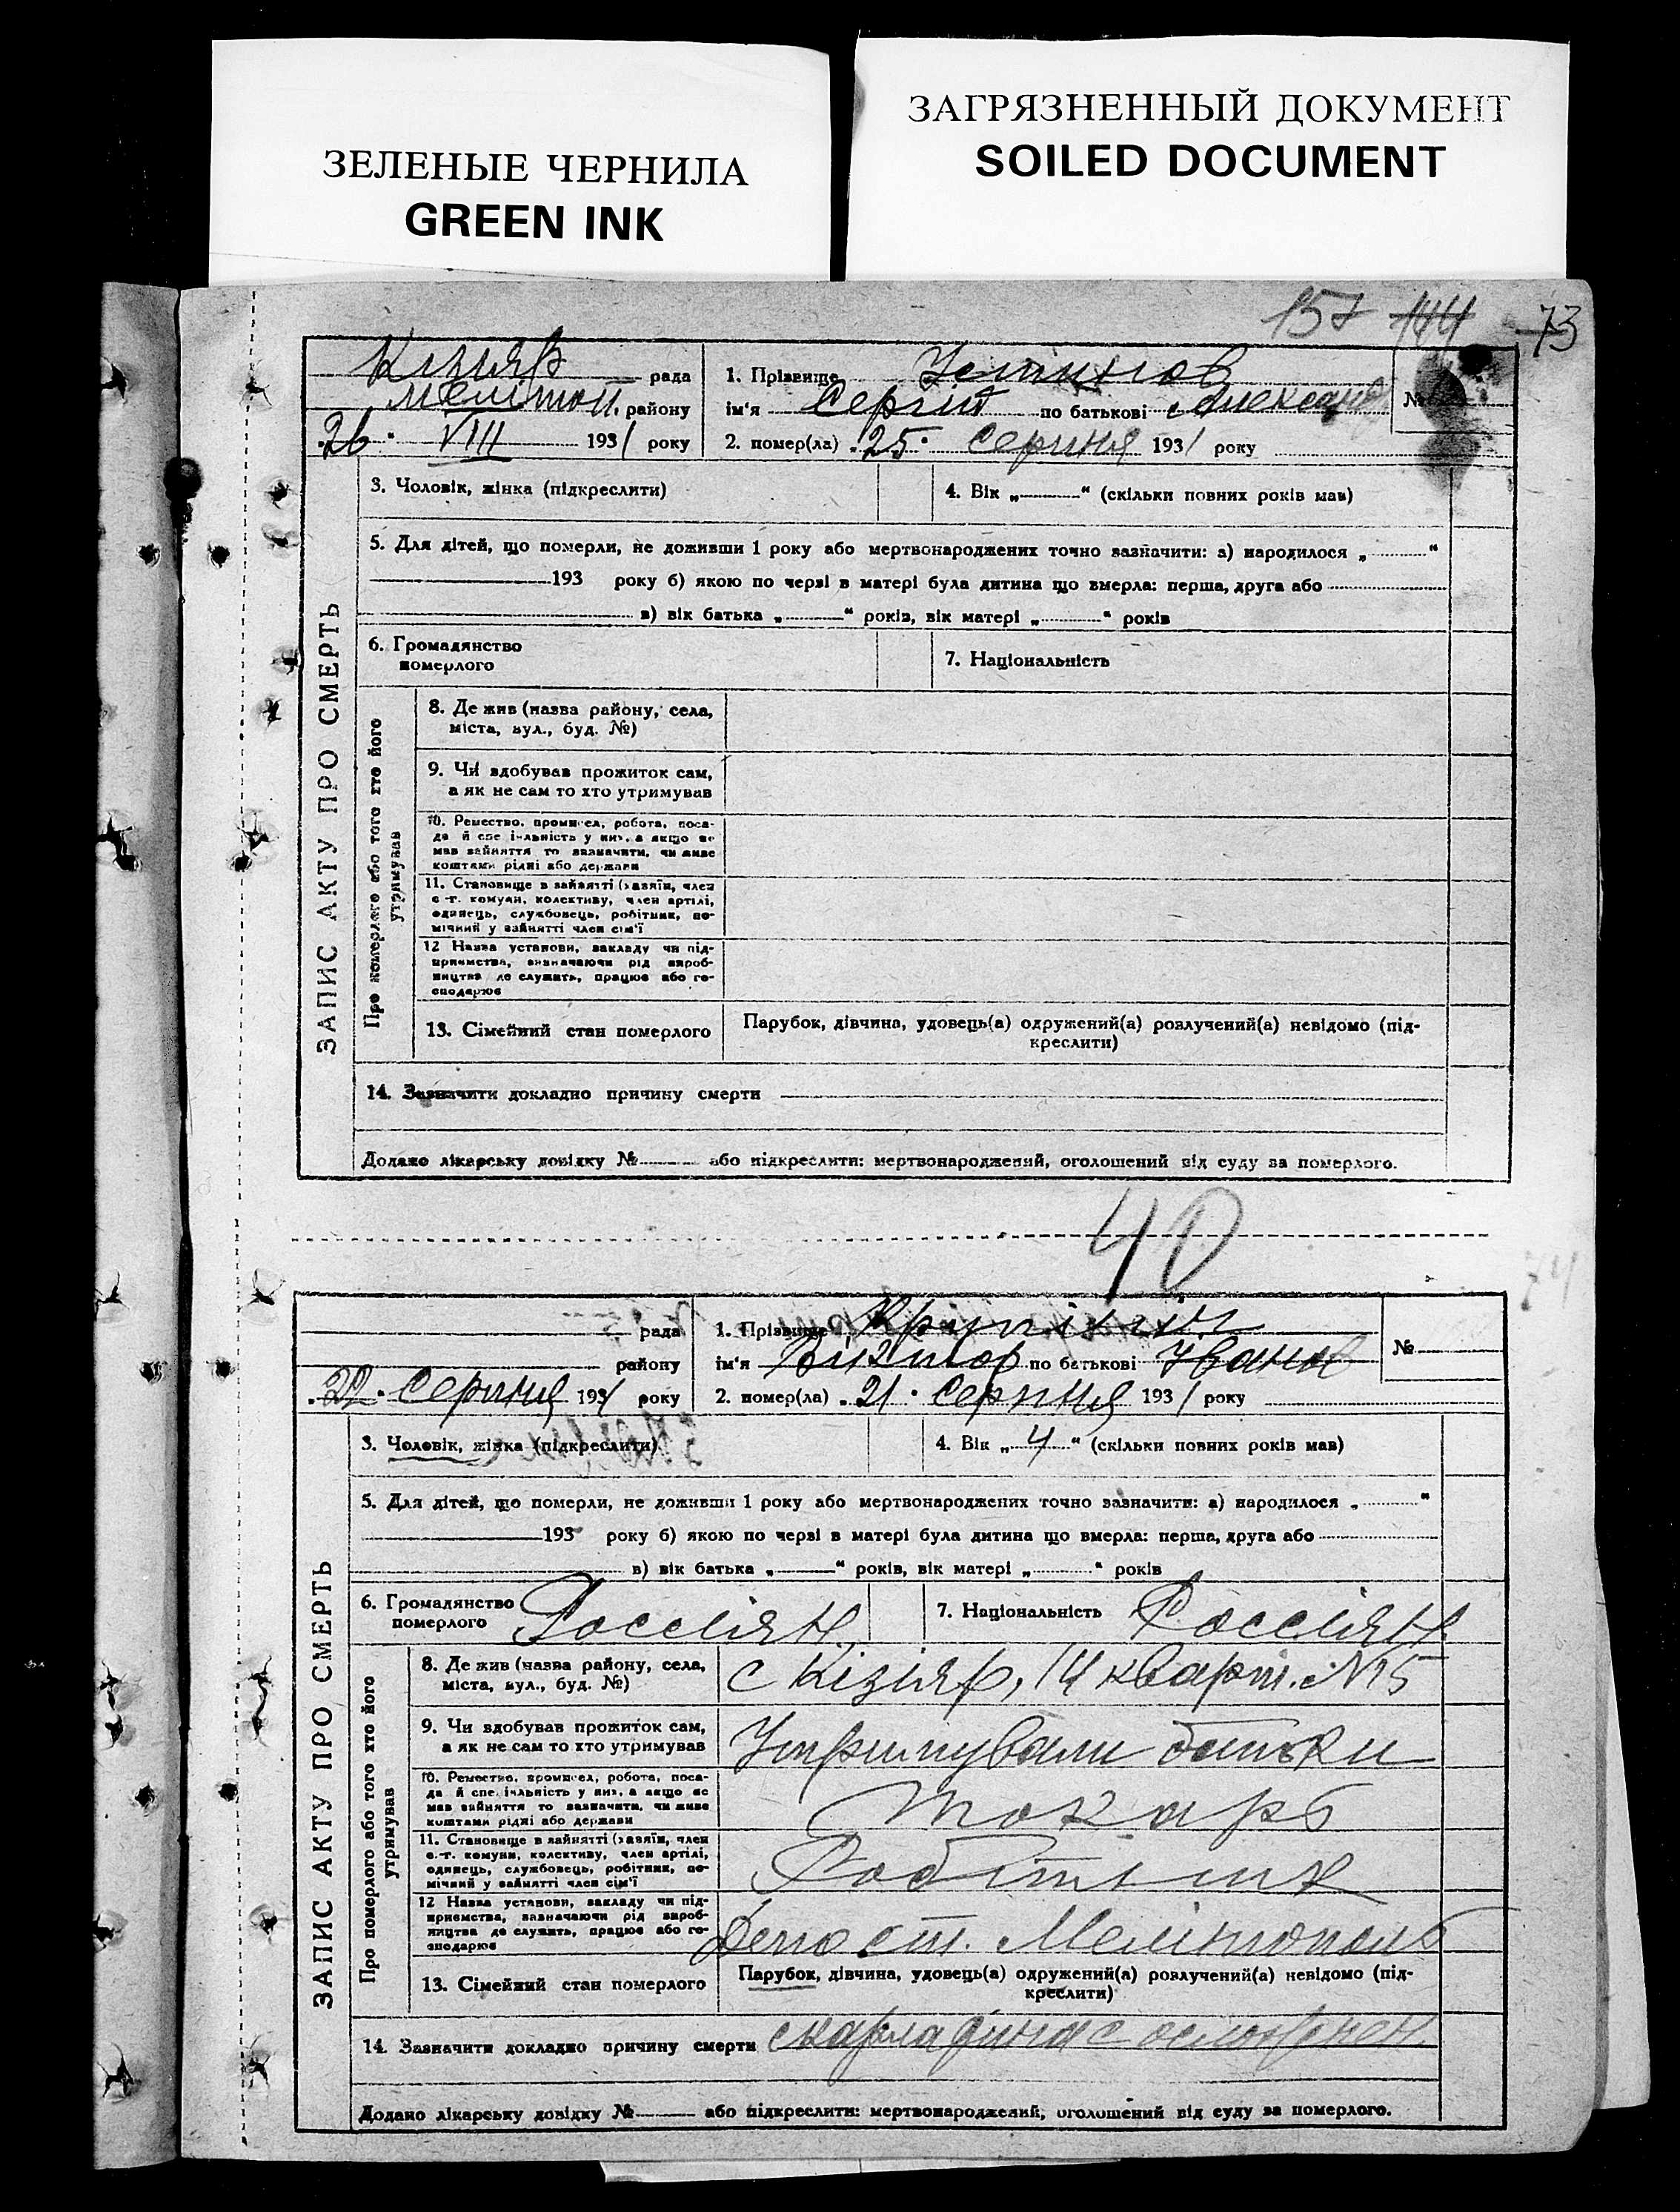 ЗЕЛЕНЫЕ ЧЕРНИЛА
GREEN INK
ЗАГРЯЗНЕННЫЙ ДОКУМЕНТ
SOILED DOCUMENT
157 144 73
Кізіяр рада
Меліто́п. району
„26“ VIII 1931 року
1. Прізвище Устинов
ім'я Сергій по батькові Александ
№
2. помер(ла) „25“ серпня 1931 року
ЗАПИС АКТУ ПРО СМЕРТЬ
3. Чоловік, жінка (підкреслити)
4. Вік „ “ (скільки повних років мав)
5. Для дітей, що померли, не доживши 1 року або мертвонароджених точно зазначити: а) народилося „ “
193 року б) якою по черзі в матері була дитина що вмерла: перша, друга або
в) вік батька „ “ років, вік матері „ “ років
6. Громадянство
померлого
7. Національність
Про померлого або того хто його
утримував
8. Де жив (назва району, села,
міста, вул., буд. №)
9. Чи здобував прожиток сам,
а як не сам то хто утримував
10. Ремество, промисел, робота, поса-
да й спеціяльність у них, а якщо не
мав зайняття то зазначити, чи живе
коштами рідні або держави
11. Становище в зайнятті (хазяїн, член
с.-г. комуни, колективу, член артілі,
одинець, службовець, робітник, по-
мічний у зайнятті член сім'ї
12 Назва установи, закладу чи під-
приємства, визначаючи рід вироб-
ництва де служить, працює або го-
сподарює
13. Сімейний стан померлого
Парубок, дівчина, удовець(а) одружений(а) розлучений(а) невідомо (під-
креслити)
14. Зазначити докладно причину смерти
Додано лікарську довідку № або підкреслити: мертвонароджений, оголошений від суду за померлого.
40
74
рада
району
„22“ Серпня 1931 року
1. Прізвище
ім'я Віктор по батькові Іванов
№
2. помер(ла) „21“ Серпня 1931 року
ЗАПИС АКТУ ПРО СМЕРТЬ
3. Чоловік, жінка (підкреслити)
4. Вік „4“ (скільки повних років мав)
5. Для дітей, що померли, не доживши 1 року або мертвонароджених точно зазначити: а) народилося „ “
193 року б) якою по черзі в матері була дитина що вмерла: перша, друга або
в) вік батька „ “ років, вік матері „ “ років
6. Громадянство
померлого Россіян.
7. Національність Россіян.
Про померлого або того хто його
утримував
8. Де жив (назва району, села,
міста, вул., буд. №)
с Кізіяр, 14 кварт. №15
9. Чи здобував прожиток сам,
а як не сам то хто утримував
Утримували батьки
10. Ремество, промисел, робота, поса-
да й спеціяльність у них, а якщо не
мав зайняття то зазначити, чи живе
коштами рідні або держави
Токарь
11. Становище в зайнятті (хазяїн, член
с.-г. комуни, колективу, член артілі,
одинець, службовець, робітник, по-
мічний у зайнятті член сім'ї
Робітник
12 Назва установи, закладу чи під-
приємства, зазначаючи рід вироб-
ництва де служить, працює або го-
сподарює
Депо ст. Мелітополь
13. Сімейний стан померлого
Парубок, дівчина, удовець(а) одружений(а) розлучений(а) невідомо (під-
креслити)
14. Зазначити докладно причину смерти скарлатина с осложнен.
Додано лікарську довідку № або підкреслити: мертвонароджений, оголошений від суду за померлого.